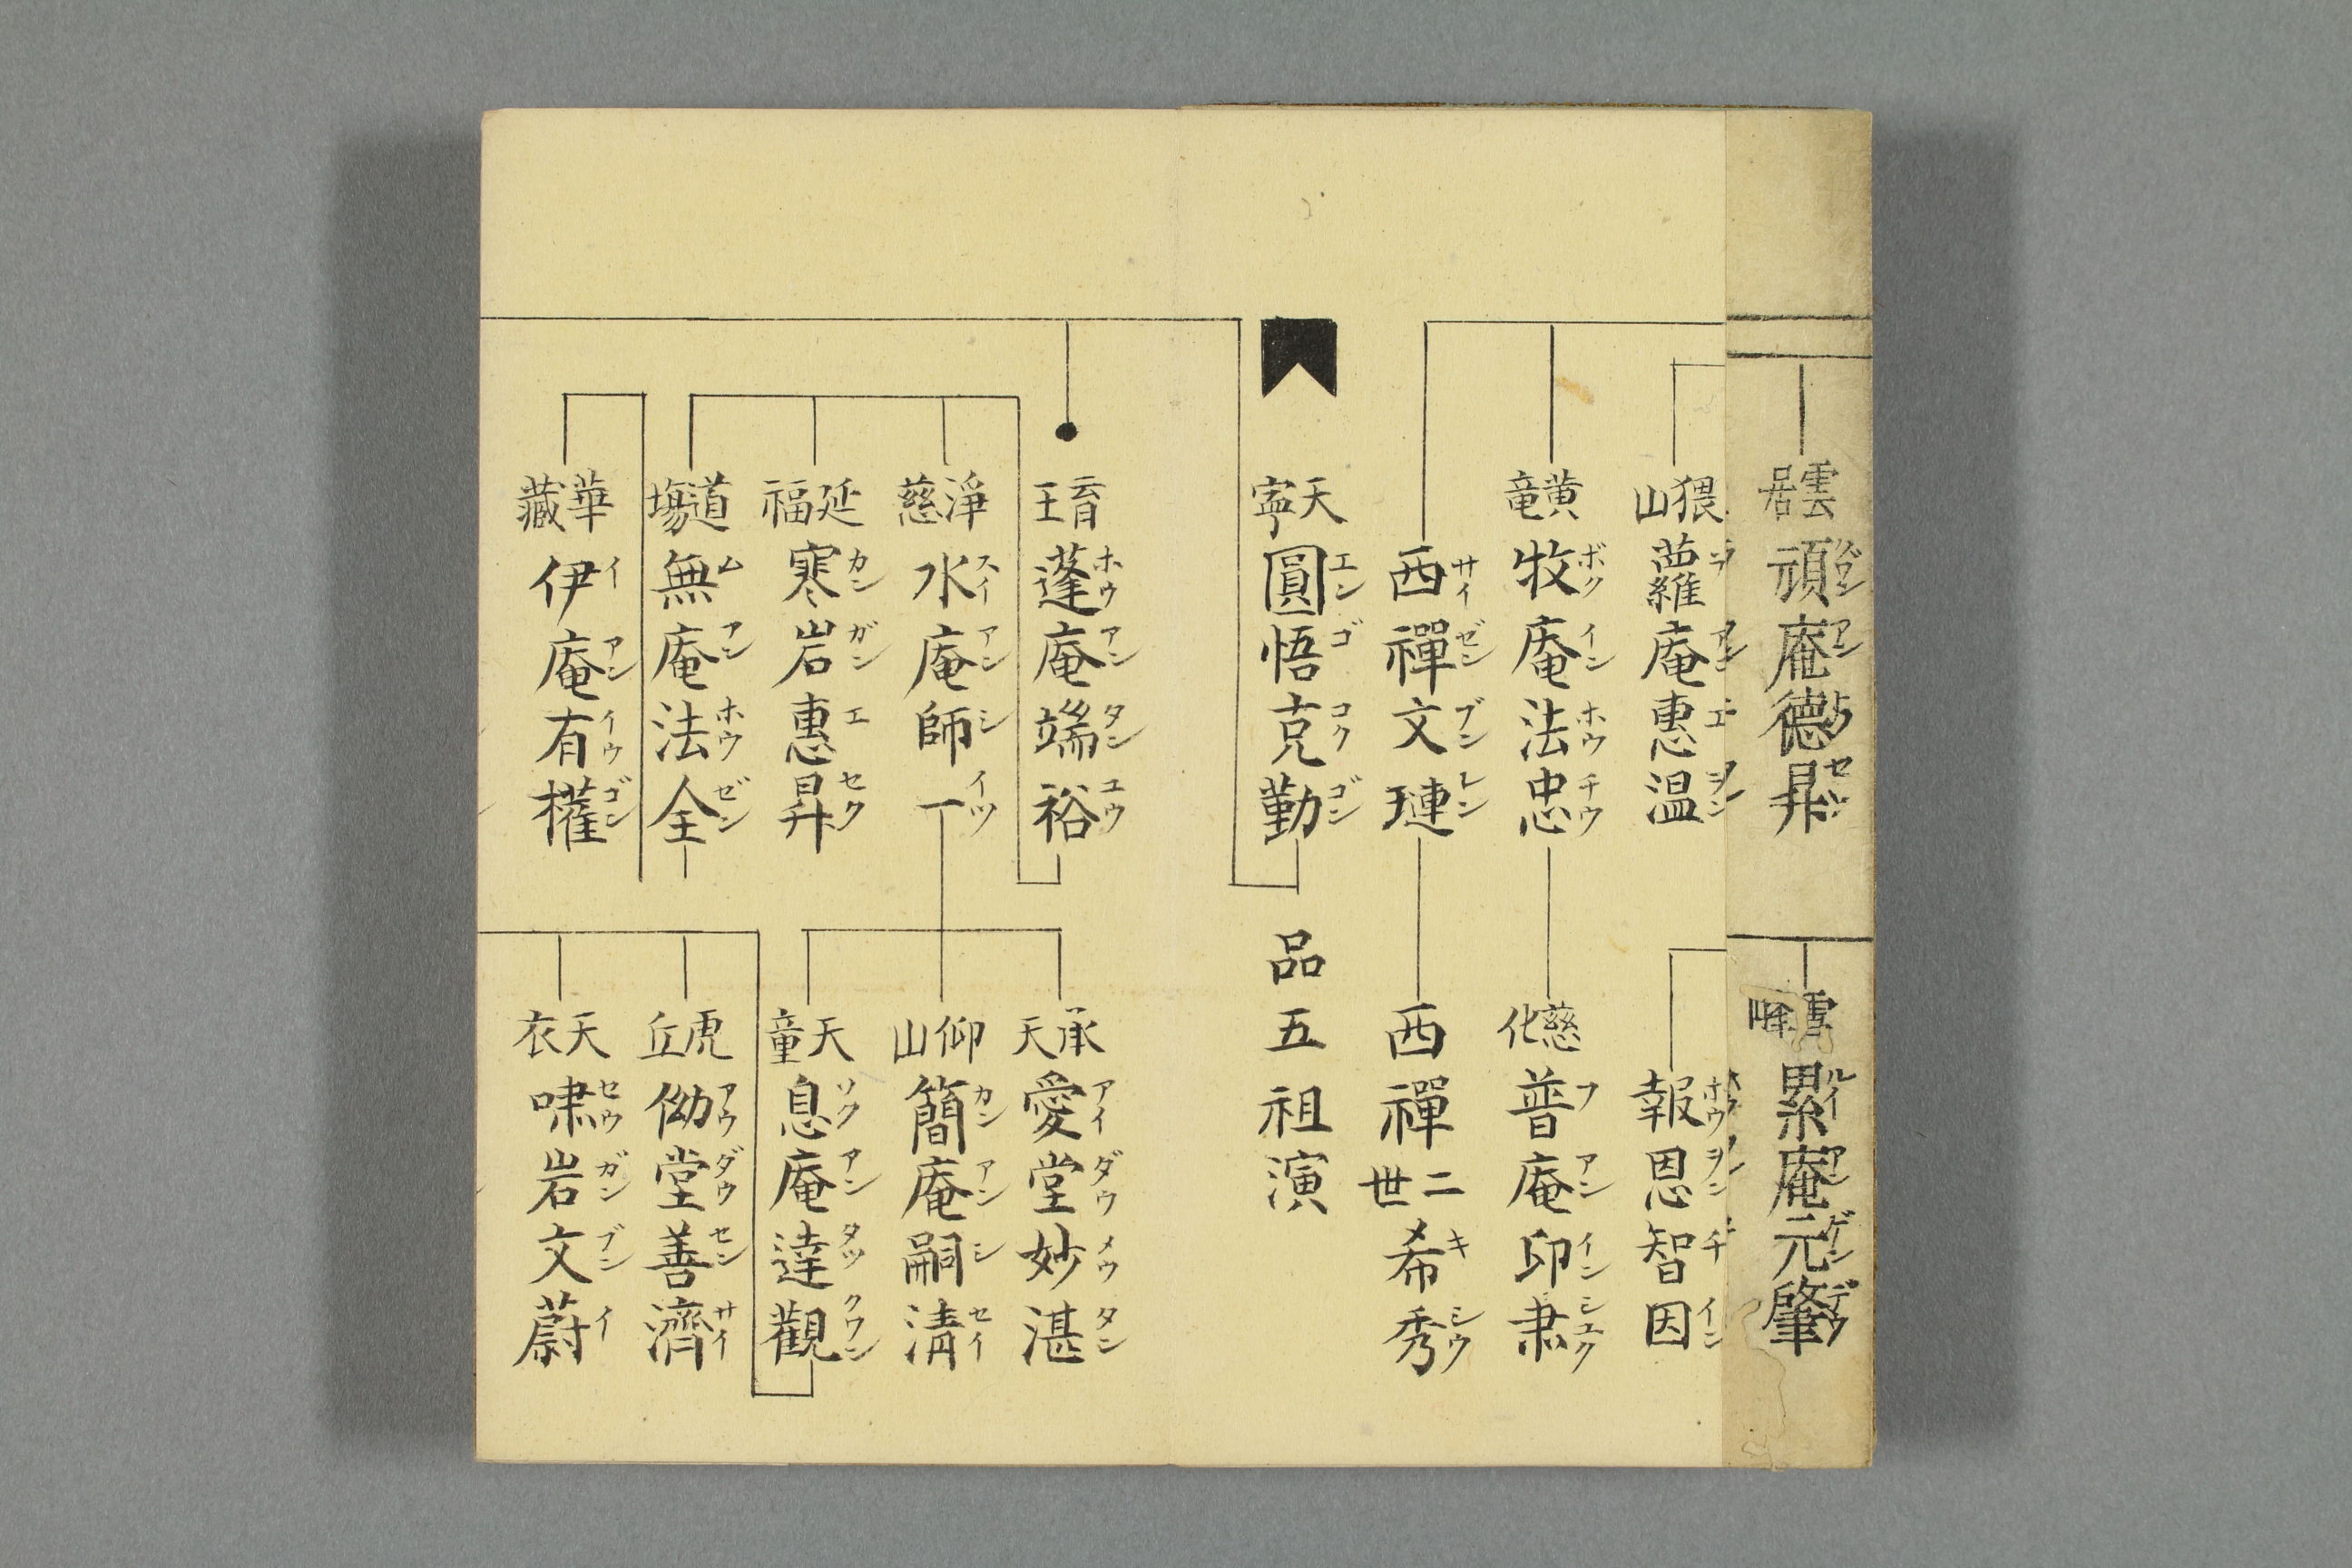 雲居 頑庵德昇
雪峰 累庵元肇
猥山 蘿庵惠温
報恩智因
黄竜 牧庵法忠
慈化 普庵印肅
西禪文璉
西禪二世希秀
天寧 圓悟克勤
品五祖演
育王 蓬庵端裕
承天 愛堂妙湛
淨慈 水庵師一
仰山 簡庵嗣清
延福 寒岩惠昇
天童 息庵達觀
道場 無庵法全
虎丘 㑃堂善濟
華藏 伊庵有權
天衣 嘯岩文蔚